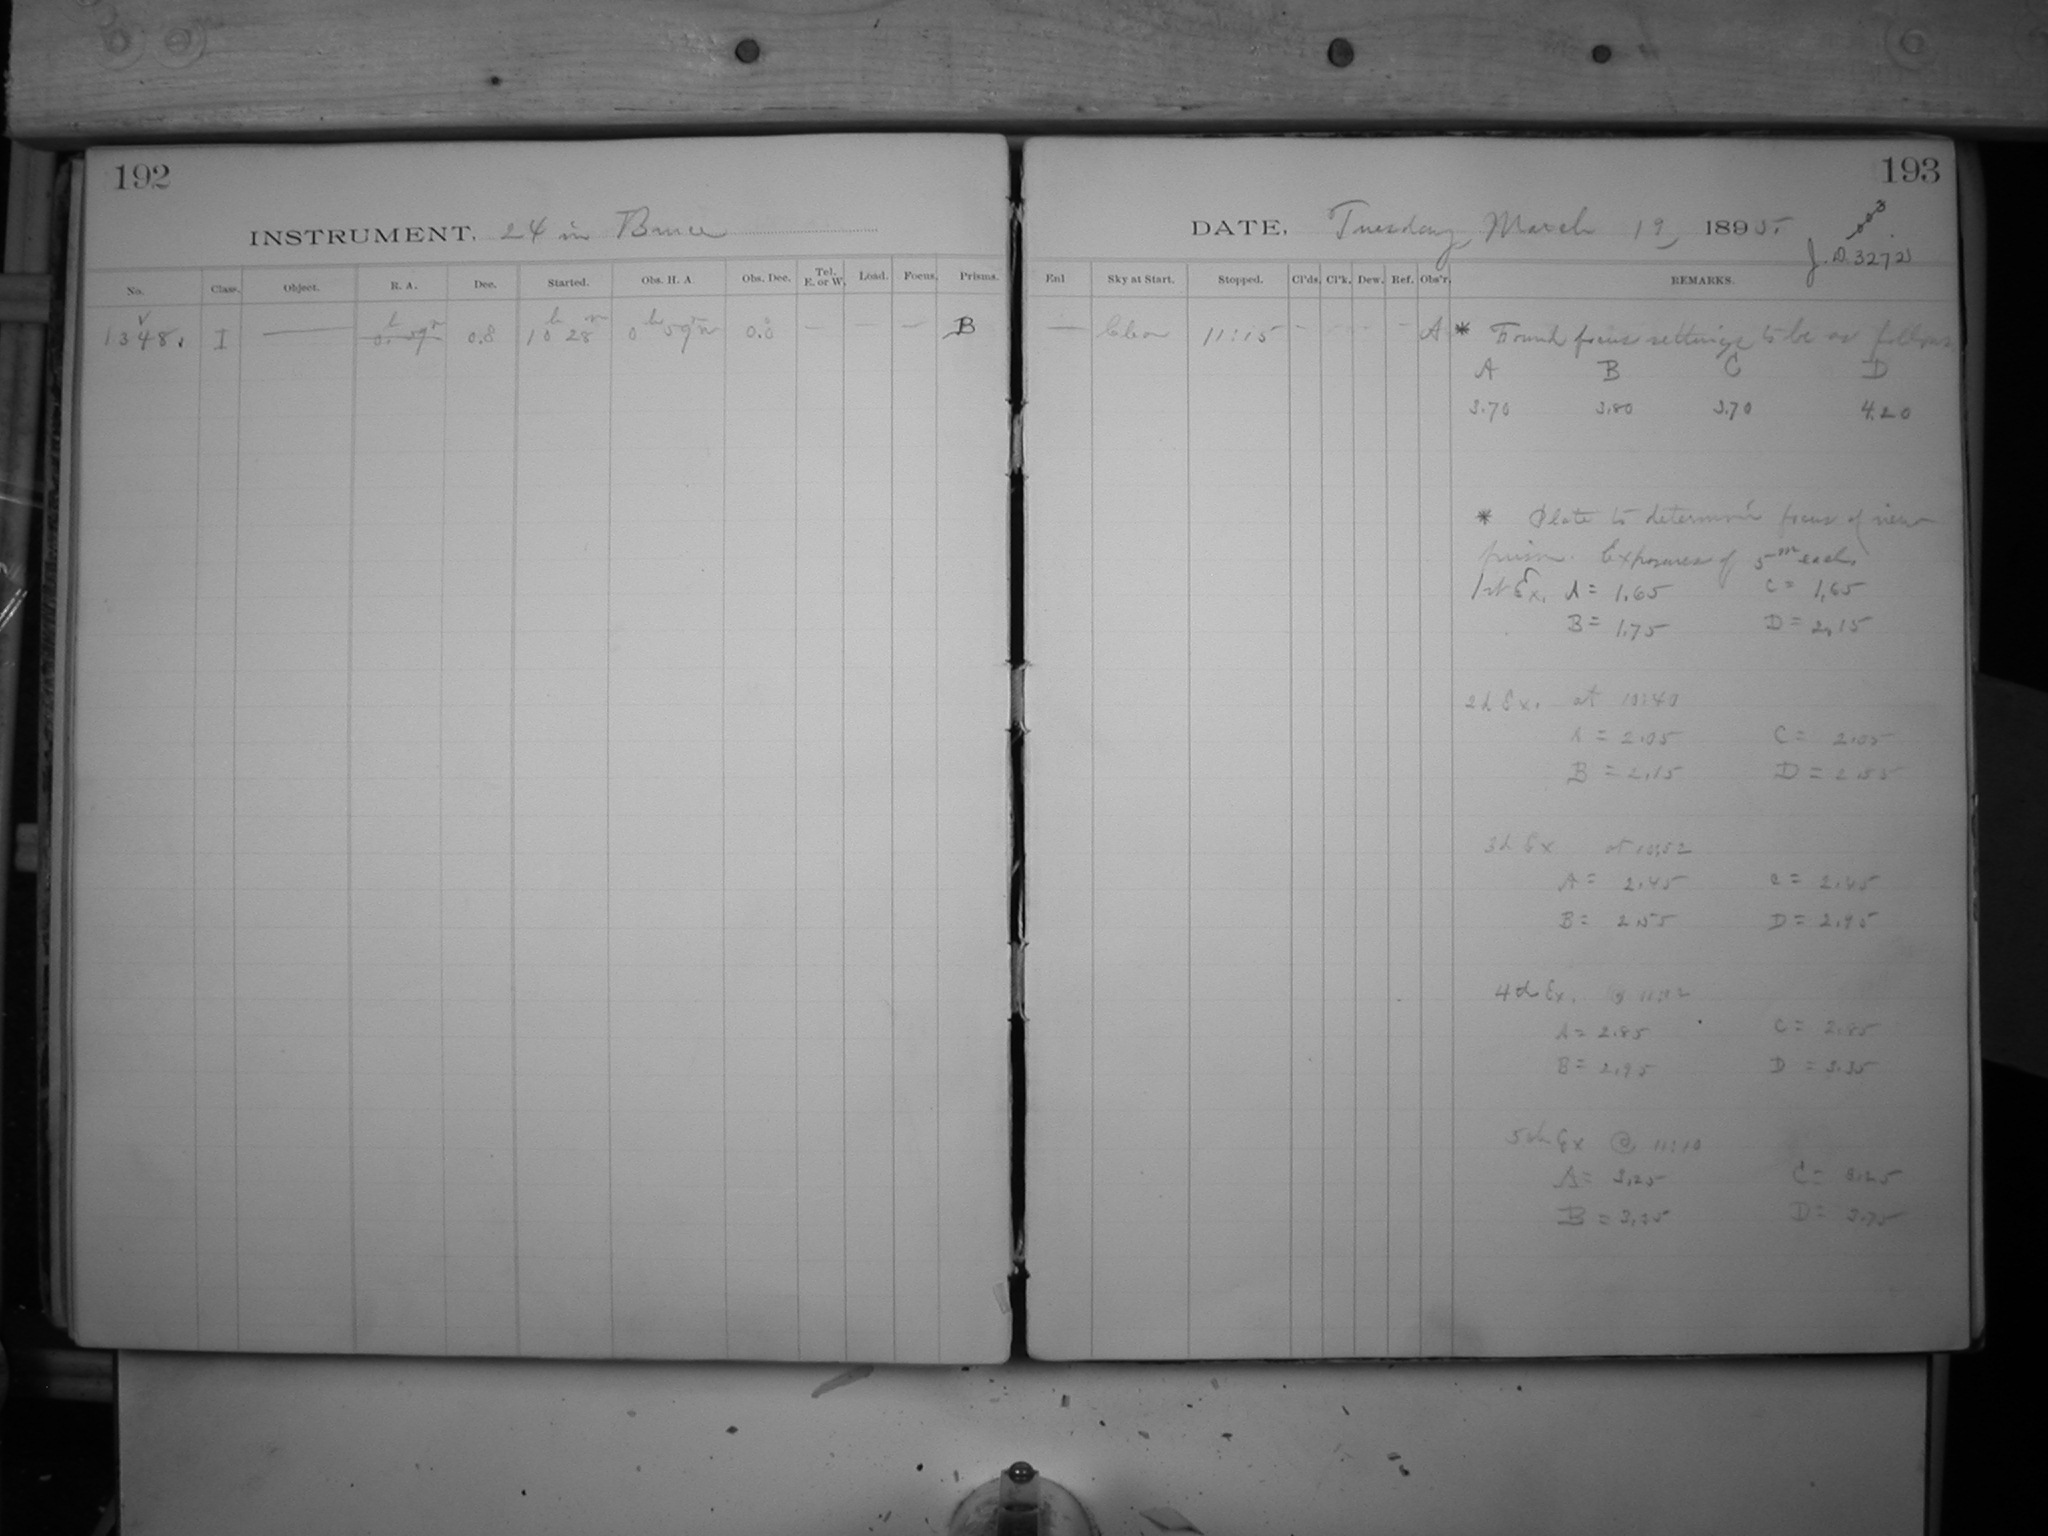 192
INSTRUMENT. 24 in Bruce
No. Class. Object. R. A. Dec. Started. Obs. H. A. Obs. Dec. Tel. E. or W. Load. Focus. Prisms.
1348. I — 0h 59m 0.8 10h 28m 0h 59m 0.8 — — — B
193
DATE, Tuesday, March 19, 1895.
J.D. 3272
Enl Sky at Start. Stopped. Cl'ds. Cl'k. Dew. Ref. Obs'r. REMARKS.
— Clear 11:15 - - - - A * Found focus settings to be as follows
A B C D
3.70 3.80 3.70 4.20
* Plate to determine focus of new
prism. Exposures of 5m each.
1st Ex. A = 1.65 C = 1.65
B = 1.75 D = 2.15
2d Ex. at 10:40
A = 2.05 C = 2.05
B = 2.15 D = 2.55
3d Ex at 10:52
A = 2.45 C = 2.45
B = 2.55 D = 2.95
4th Ex. @ 11:02
A = 2.85 C = 2.85
B = 2.95 D = 3.35
5th Ex @ 11:10
A = 3.25 C = 3.25
B = 3.35 D = 3.75